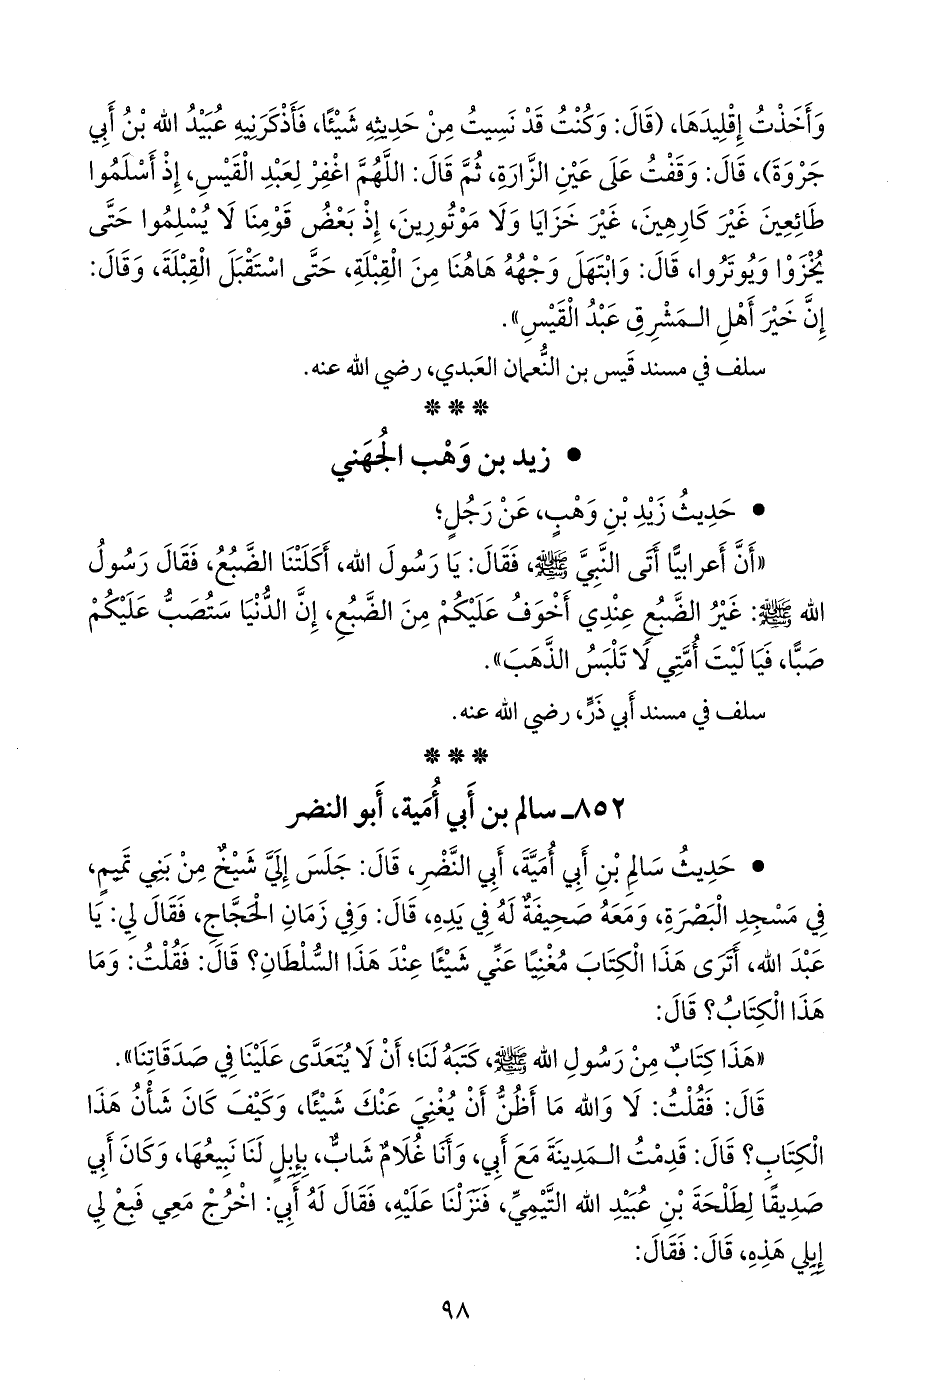 وَأَخَذْتُ إِقْلِيدَهَا، (قَالَ: وَكُنْتُ قَدْ نَسِيتُ مِنْ حَدِيثِهِ شَيْئًا، فَأَذْكَرَنِيهِ عُبَيْدُ الله بْنُ أَبِي
جَرْوَةَ)، قَالَ: وَقَفْتُ عَلَى عَيْنِ الزَّارَةِ، ثُمَّ قَالَ: اللَّهُمَّ اغْفِرْ لِعَبْدِ الْقَيْسِ، إِذْ أَسْلَمُوا
طَائِعِينَ غَيْرَ كَارِهِينَ، غَيْرَ خَزَايَا وَلَا مَوْتُورِينَ، إِذْ بَعْضُ قَوْمِنَا لَا يُسْلِمُوا حَتَّى
يُخْزَوْا وَيُوتَرُوا، قَالَ: وَابْتَهَلَ وَجْهُهُ هَاهُنَا مِنَ الْقِبْلَةِ، حَتَّى اسْتَقْبَلَ الْقِبْلَةَ، وَقَالَ:
إِنَّ خَيْرَ أَهْلِ الـمَشْرِقِ عَبْدُ الْقَيْسِ».
سلف في مسند قَيس بن النُّعمان العَبدي، رضي الله عنه.
***
• زيد بن وَهْب الجُهَني
• حَدِيثُ زَيْدِ بْنِ وَهْبٍ، عَنْ رَجُلٍ؛
«أَنَّ أَعرابيًّا أَتَى النَّبِيَّ ﷺ، فَقَالَ: يَا رَسُولَ الله، أَكَلَتْنَا الضَّبُعُ، فَقَالَ رَسُولُ
الله ﷺ: غَيْرُ الضَّبُعِ عِنْدِي أَخْوَفُ عَلَيْكُمْ مِنَ الضَّبُعِ، إِنَّ الدُّنْيَا سَتُصَبُّ عَلَيْكُمْ
صَبًّا، فَيَا لَيْتَ أُمَّتِي لَا تَلْبَسُ الذَّهَبَ».
سلف في مسند أَبي ذَرٍّ، رضي الله عنه.
***
٨٥٢ـ سالم بن أَبي أُمَية، أَبو النضر
• حَدِيثُ سَالِمِ بْنِ أَبِي أُمَيَّةَ، أَبِي النَّضْرِ، قَالَ: جَلَسَ إِلَيَّ شَيْخٌ مِنْ بَنِي تَمِيمٍ،
فِي مَسْجِدِ الْبَصْرَةِ، وَمَعَهُ صَحِيفَةٌ لَهُ فِي يَدِهِ، قَالَ: وَفِي زَمَانِ الْحَجَّاجِ، فَقَالَ لِي: يَا
عَبْدَ الله، أَتَرَى هَذَا الْكِتَابَ مُغْنِيًا عَنِّي شَيْئًا عِنْدَ هَذَا السُّلْطَانِ؟ قَالَ: فَقُلْتُ: وَمَا
هَذَا الْكِتَابُ؟ قَالَ:
«هَذَا كِتَابٌ مِنْ رَسُولِ الله ﷺ، كَتَبَهُ لَنَا؛ أَنْ لَا يُتَعَدَّى عَلَيْنَا فِي صَدَقَاتِنَا».
قَالَ: فَقُلْتُ: لَا وَالله مَا أَظُنُّ أَنْ يُغْنِيَ عَنْكَ شَيْئًا، وَكَيْفَ كَانَ شَأْنُ هَذَا
الْكِتَابِ؟ قَالَ: قَدِمْتُ الـمَدِينَةَ مَعَ أَبِي، وَأَنَا غُلَامٌ شَابٌّ، بِإِبِلٍ لَنَا نَبِيعُهَا، وَكَانَ أَبِي
صَدِيقًا لِطَلْحَةَ بْنِ عُبَيْدِ الله التَّيْمِيِّ، فَنَزَلْنَا عَلَيْهِ، فَقَالَ لَهُ أَبِي: اخْرُجْ مَعِي فَبِعْ لِي
إِبِلِي هَذِهِ، قَالَ: فَقَالَ:
٩٨